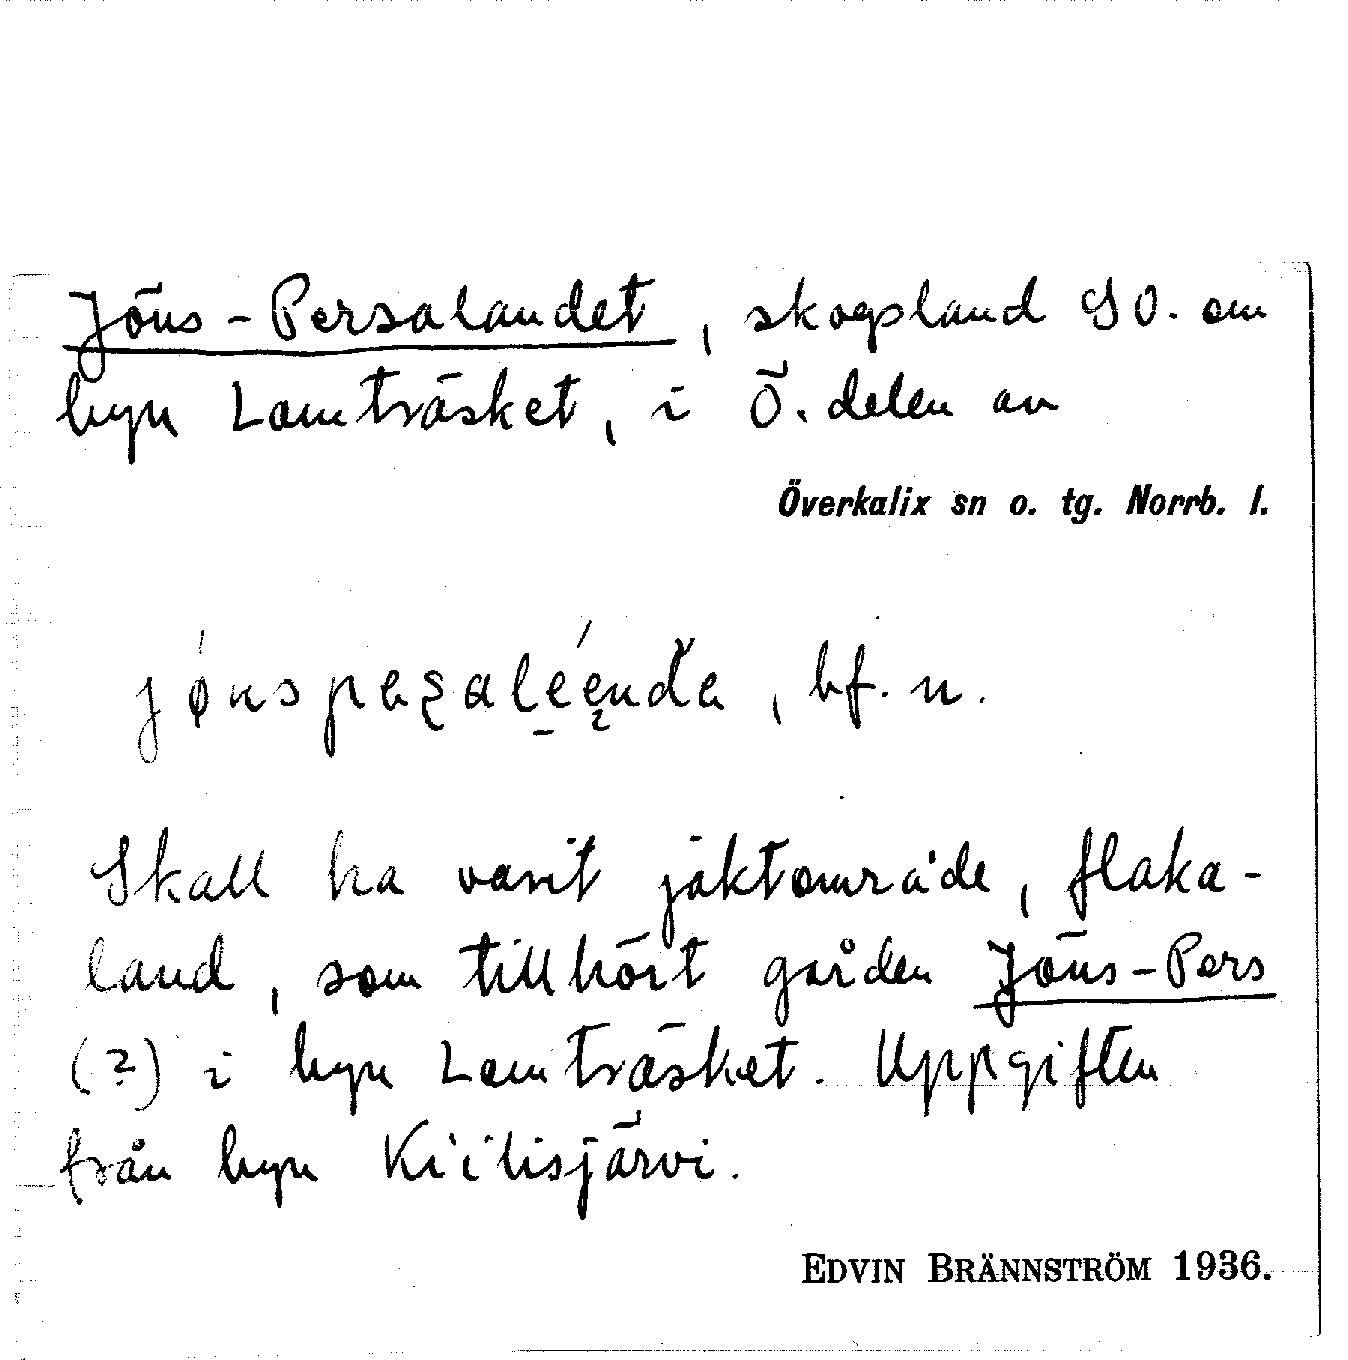 Jöns-Persalandet, skogsland SO. om
byn Lomträsket, i Ö. delen av
Överkalix sn o. tg. Norrb. l.
bf. n.
Skall ha varit jaktområde, flaka-
land, som tillhört gården Jöns-Pers
(?) i byn Lomträsket. Uppgiften
från byn Kiilisjärvi.
EDVIN BRÄNNSTRÖM 1936.